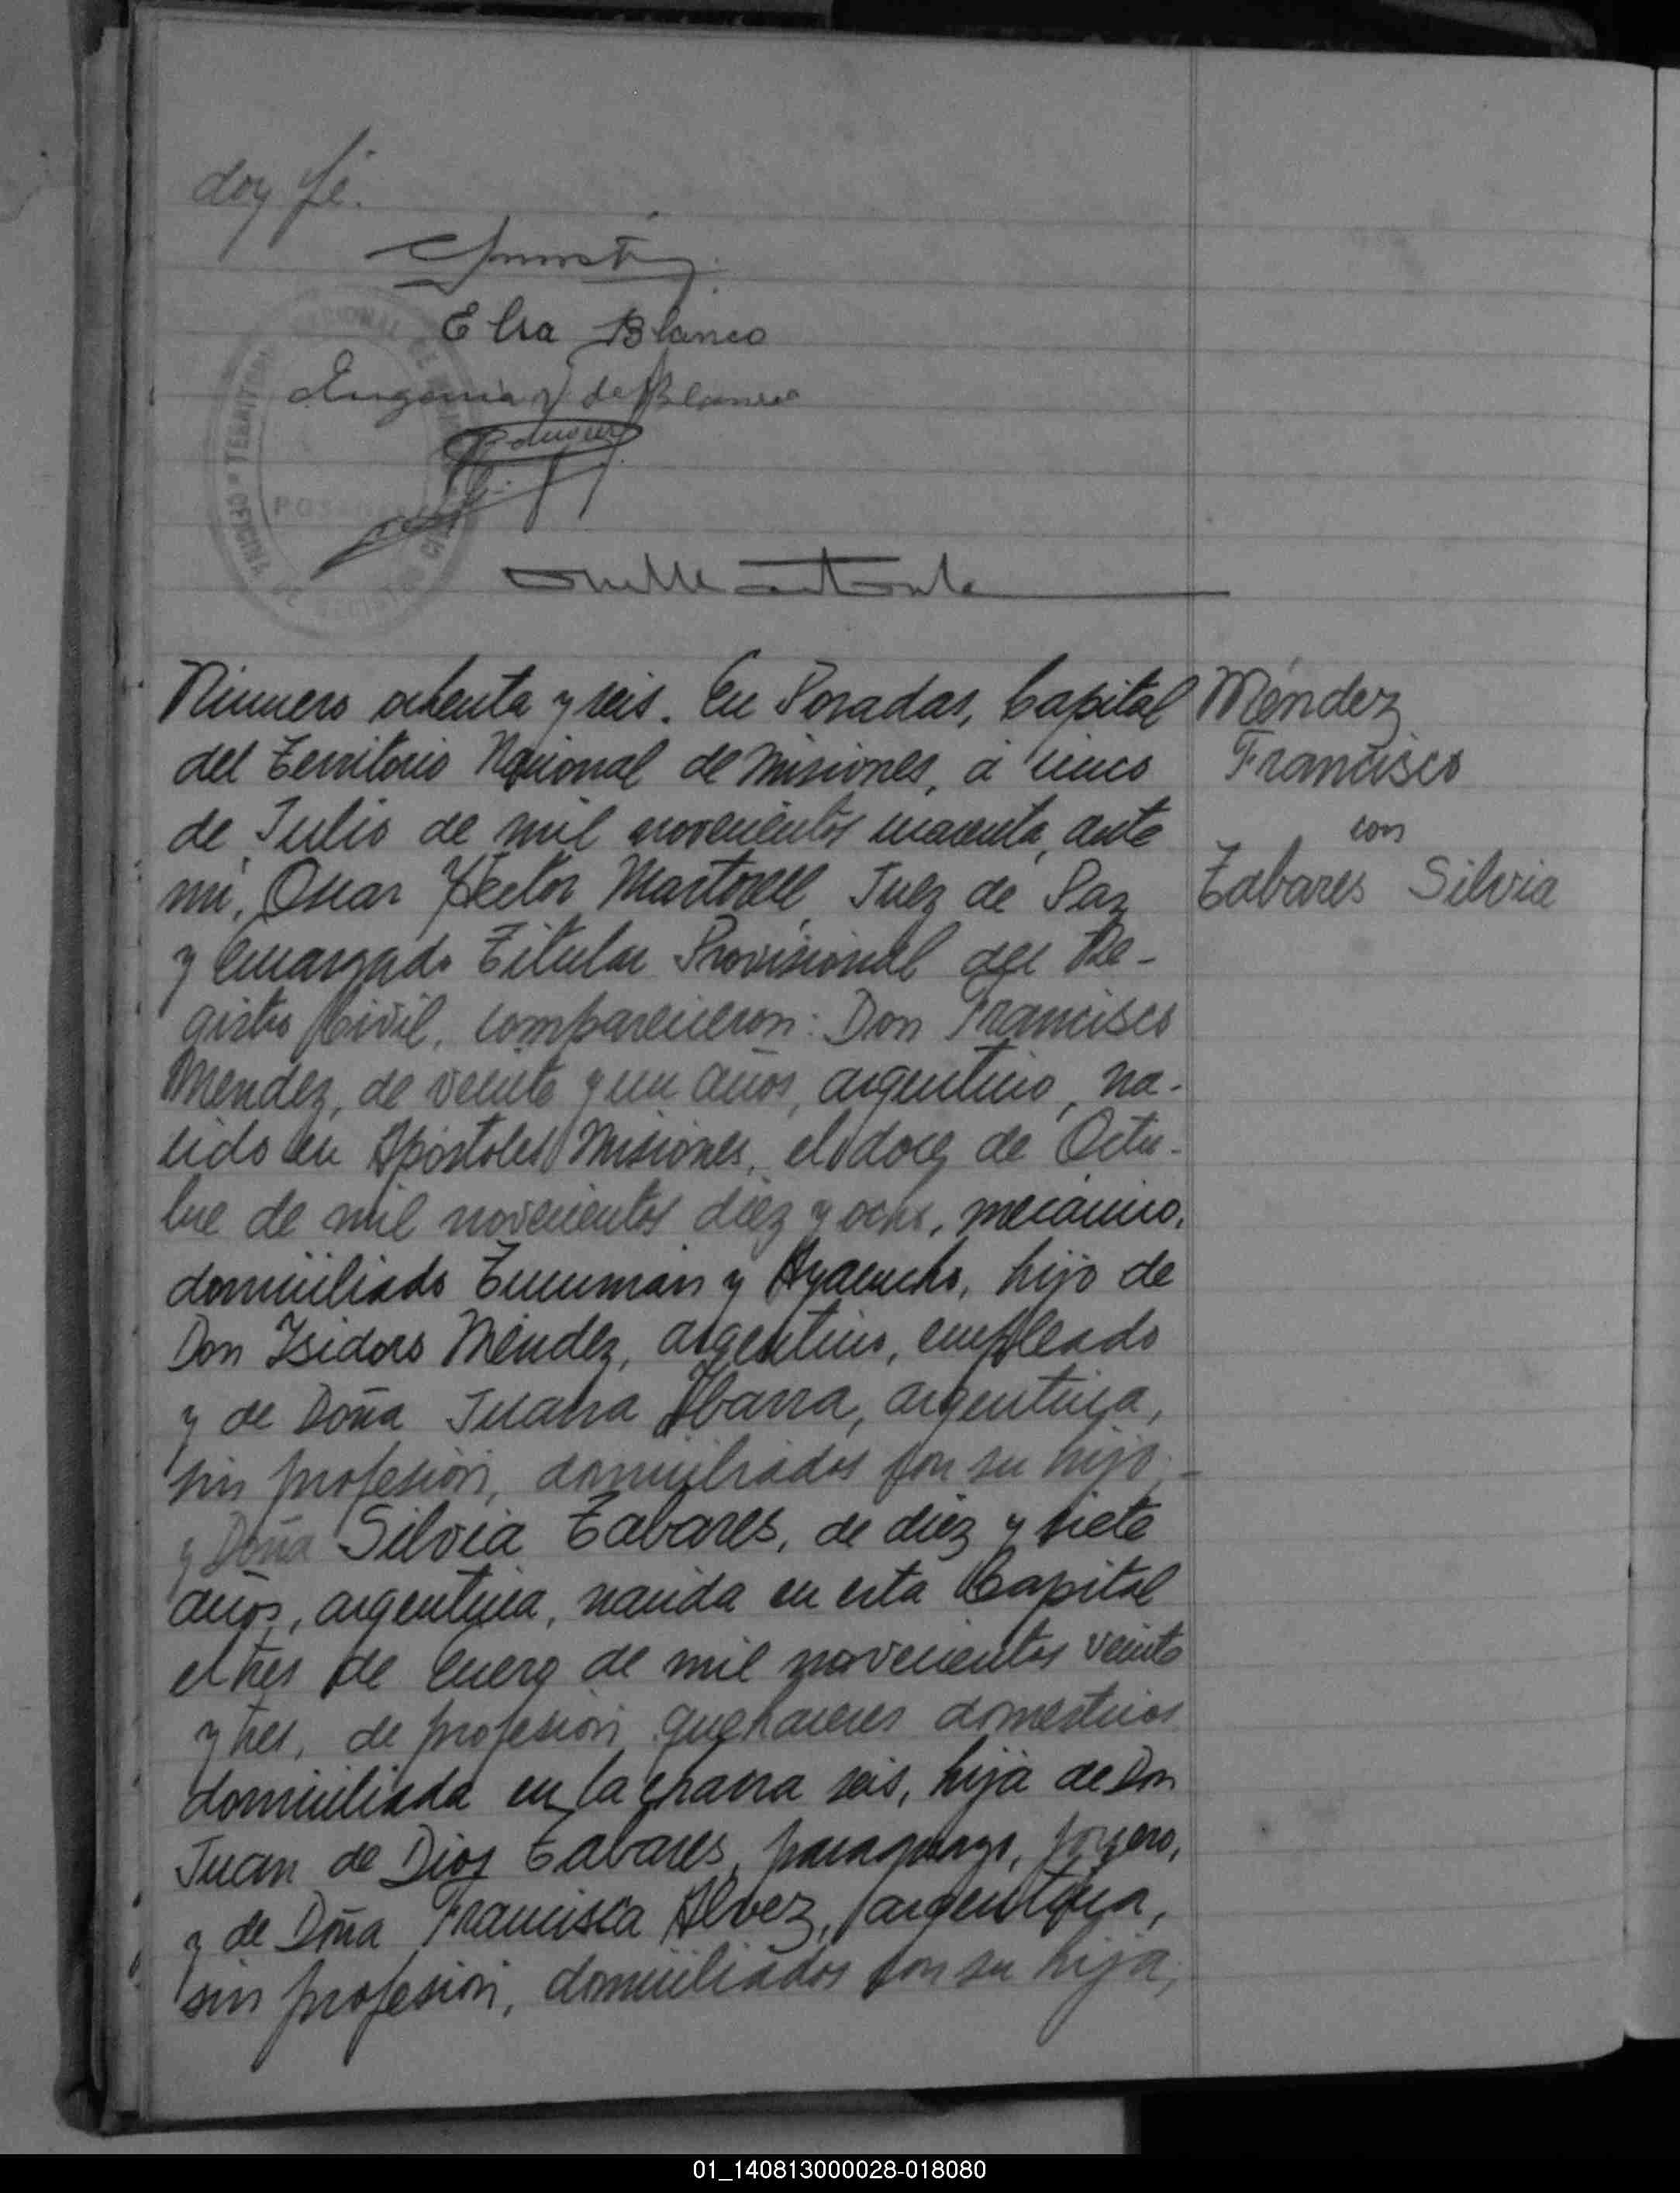 doy fé.
Elsa Blanco
Eugenia de Blanco
OFICINA TERRITORIAL
POSADAS
Número ochenta y seis. En Posadas, Capital
del Territorio Nacional de Misiones, a cinco
de Julio de mil novecientos cuarenta, ante
mi, Oscar Héctor Martorell, Juez de Paz
y Encargado Titular Provisional del Re-
gistro Civil, comparecieron: Don Francisco
Mendez, de veinte y un años, argentino, na-
cido en Apóstoles Misiones, el doce de Octu-
bre de mil novecientos diez y ocho, mecánico,
domiciliado Tucumán y Ayacucho, hijo de
Don Isidoro Méndez, argentino, empleado
y de Doña Juana Ibarra, argentina,
sin profesión, domiciliados con su hijo,-
y Doña Silvia Tabares, de diez y siete
años, argentina, nacida en esta Capital
el tres de Enero de mil novecientos veinte
y tres, de profesión quehaceres domesticos
domiciliada en la chacra seis, hija de Don
Juan de Dios Tabares, paraguayo,
y de Doña Francisca Alvez, argentina,
sin profesión, domiciliados con su hija,
Méndez
Francisco
con
Tabares Silvia
01_140813000028-018080